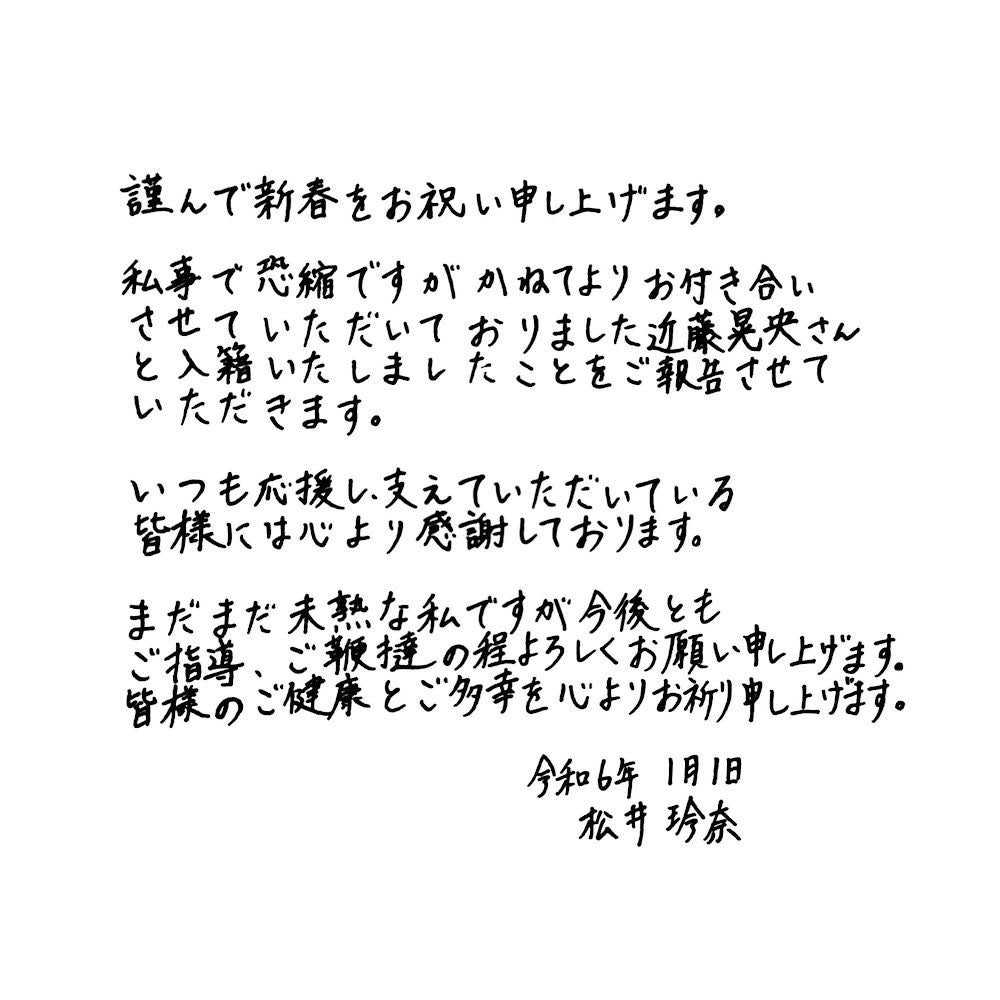 謹んで新春をお祝い申し上げます。
私事で恐縮ですがかねてよりお付き合い
させていただいておりました近藤晃央さん
と入籍いたしましたことをご報告させて
いただきます。
いつも応援し、支えていただいている
皆様には心より感謝しております。
まだまだ未熟な私ですが今後とも
ご指導、ご鞭撻の程よろしくお願い申し上げます。
皆様のご健康とご多幸を心よりお祈り申し上げます。
令和6年 1月1日
松井 玲奈